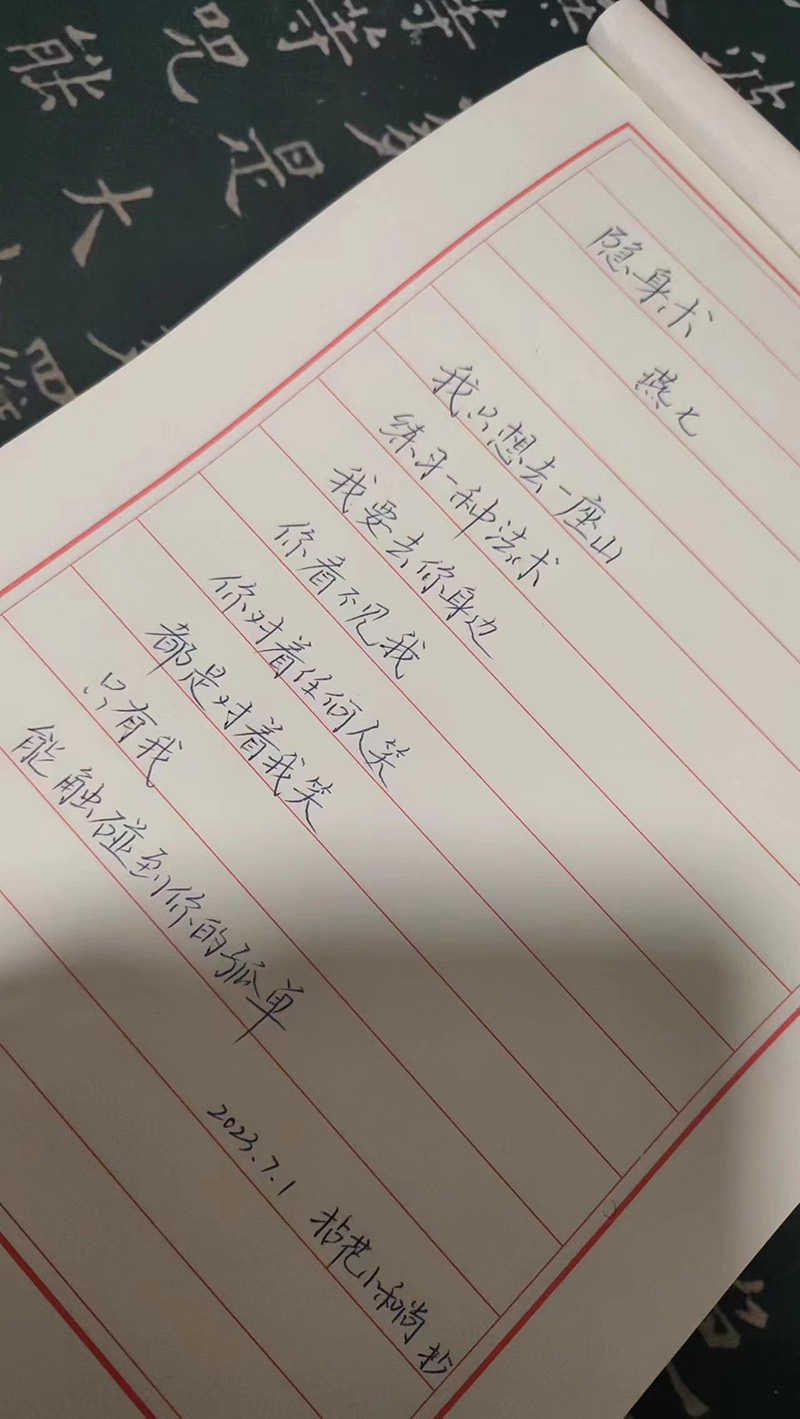 隐身术
燕七
我只想去一座山
练习一种法术
我要去你身边
你看不见我
你对着任何人笑
都是对着我笑
只有我
能触碰到你的孤单
2023.7.1 拈花小和尚 抄
能 咒 等 等
大 是